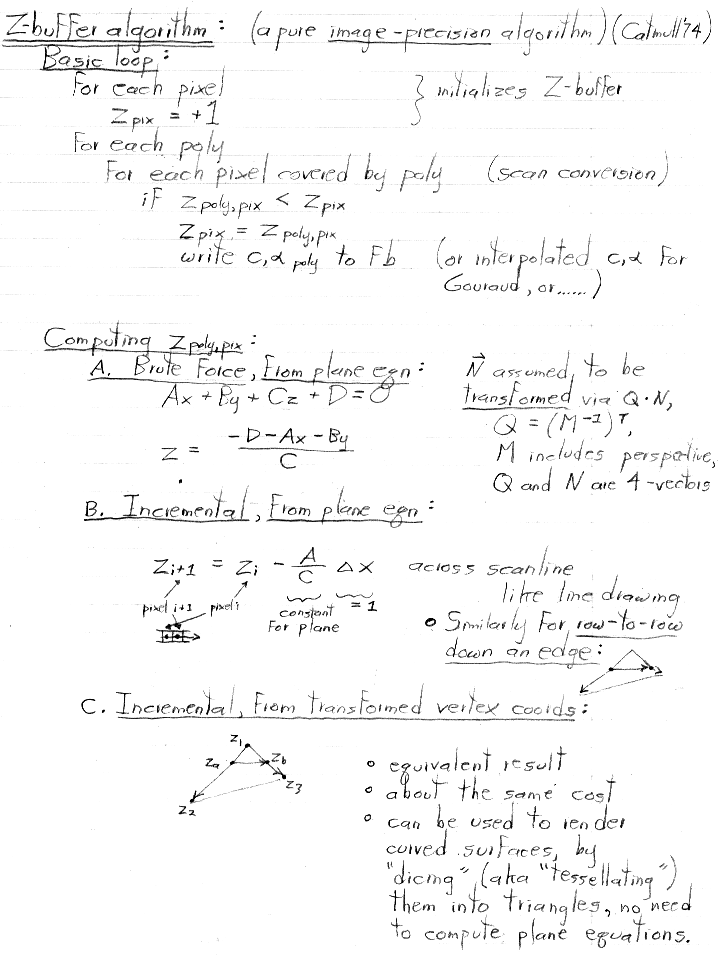 Z-buffer algorithm: (a pure image-precision algorithm) (Catmull '74)
Basic loop:
For each pixel } initializes Z-buffer
Z pix = +1
For each poly
For each pixel covered by poly (scan conversion)
if Z poly,pix < Z pix
Z pix = Z poly,pix
write c,α poly to Fb (or interpolated c,α for
Gouraud, or......)
Computing Z poly,pix:
A. Brute Force, From plane eqn: N⃗ assumed to be
Ax + By + Cz + D = 0 transformed via Q·N,
Q = (M⁻¹)ᵀ,
z = (-D-Ax-By)/C M includes perspective,
Q and N are 4-vectors
B. Incremental, From plane eqn:
Zi+1 = Zi - A/C Δx across scanline
like line drawing
pixel i+1 pixel i constant = 1
For plane
• Similarly for row-to-row
down an edge:
C. Incremental, From transformed vertex coords:
Z1
Za Zb
Z3
Z2
• equivalent result
• about the same cost
• can be used to render
curved surfaces, by
"dicing" (aka "tessellating")
them into triangles, no need
to compute plane equations.